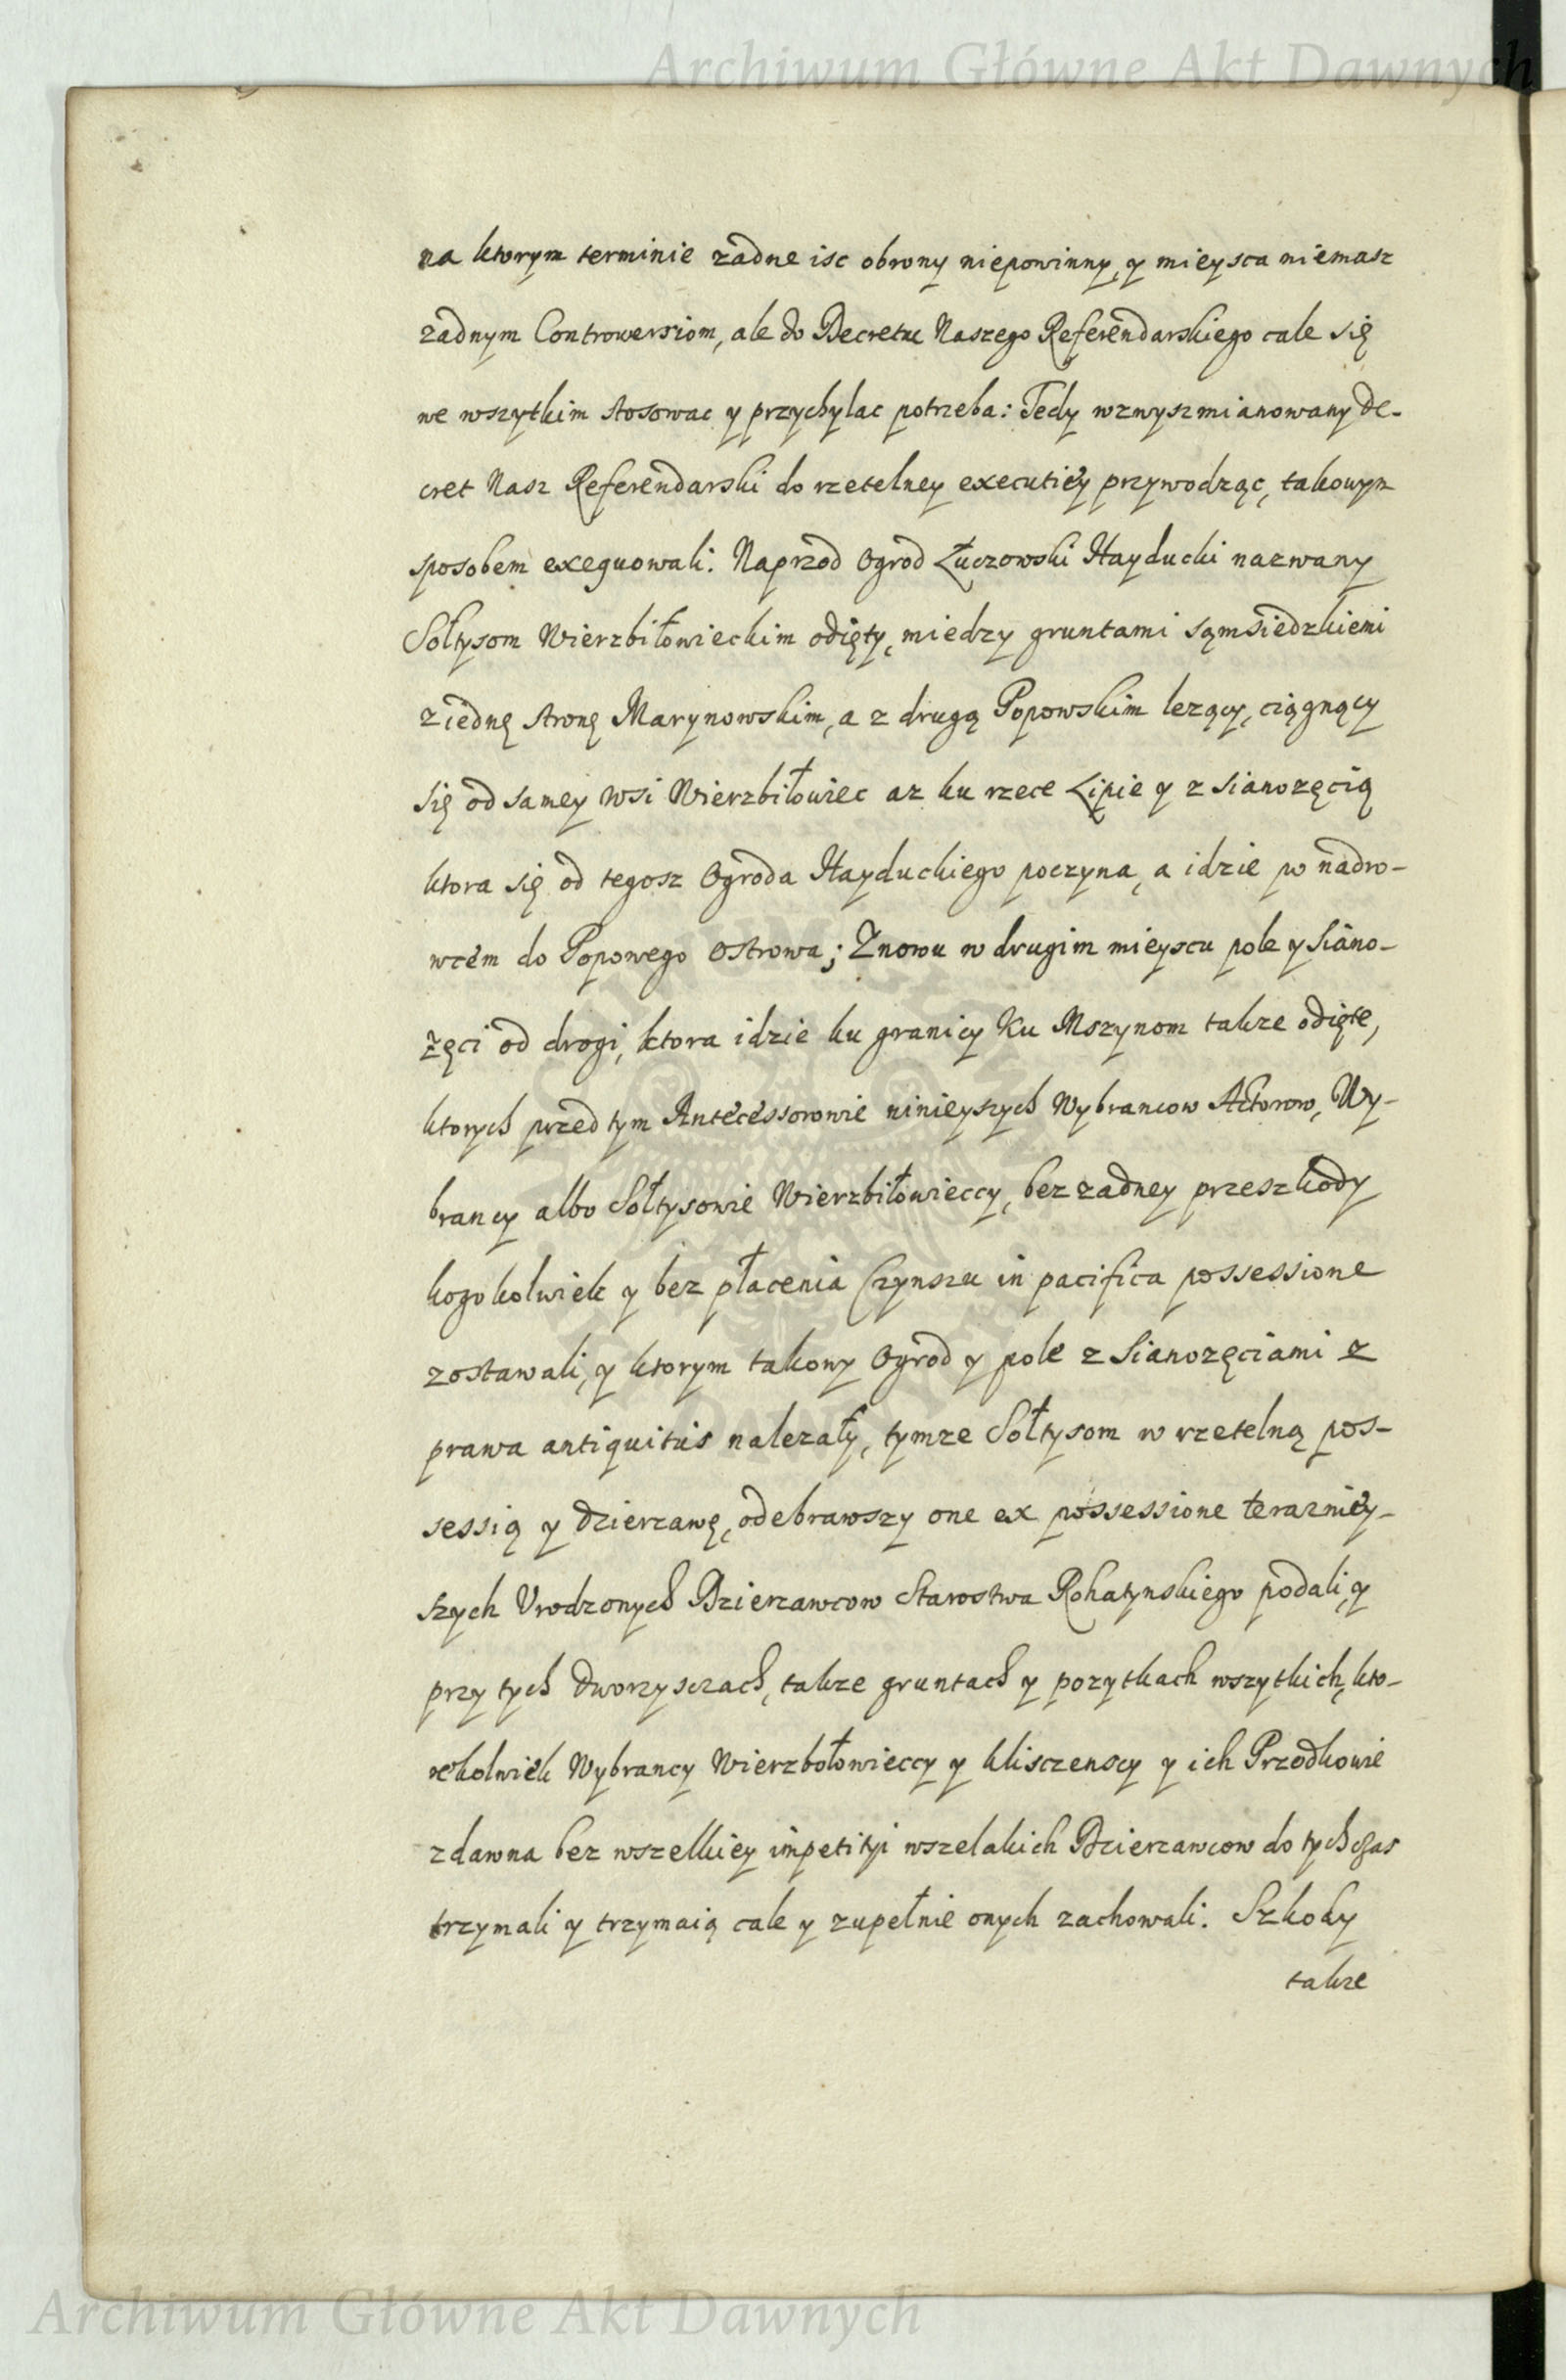 Archiwum Główne Akt Dawnych
na ktorym terminie zadne isc obrony niepowinny, y mieysca niemasz
zadnym Controwersiom, ale do Decretu Naszego Referendarskiego cale się
we wszytkim stosowac y przychylac potrzeba: Tedy wzwyszmianowany de-
cret Nasz Referendarski do rzetelney executiey przywodząc, takowym
sposobem exeguowali. Naprzod Ogrod Łuczowski Hayducki nazwany
Sołtysom Wierzbiłowieckim odięty, miedzy gruntami sąmsiedzkiemi
z iednę stronę Marynowskim, a z drugą Popowskim lezący, ciągnący
się od samey wsi Wierzbiłowiec az ku rzece Lipie y z sianozęcią
ktora się od tegosz Ogroda Hayduckiego poczyna, a idzie po nadro-
wcem do Popowego Ostrowa; Znowu w drugim mieyscu pole y siano-
zęci od drogi, ktora idzie ku granicy Ku Mszynom takze odięte,
ktorych przed tym Antecessorowie ninieyszych Wybrancow Aktorow, Wy-
brancy albo Sołtysowie Wierzbiłowieccy, bez zadney przeszkody
kogokolwiek y bez płacenia Czynszu in pacifica possessione
zostawali, y ktorym takowy Ogrod y pole z Sianozęciami z
prawa antiquitus nalezały, tymze Sołtysom w rzetelną pos-
sessią y dzierzawę, odebrawszy one ex possessione terazniey-
szych Urodzonych Dzierzawcow Starostwa Rohatynskiego podali, y
przy tych dworzysczach, takze gruntach y pozytkach wszytkich, kto-
rekolwiek Wybrancy Wierzbołowieccy y kliszczenscy y ich Przodkowie
zdawna bez wszelkiey impetityi wszelakich Dzierzawcow do tychczas
trzymali y trzymaią cale y zupełnie onych zachowali. Szkody
takze
Archiwum Główne Akt Dawnych